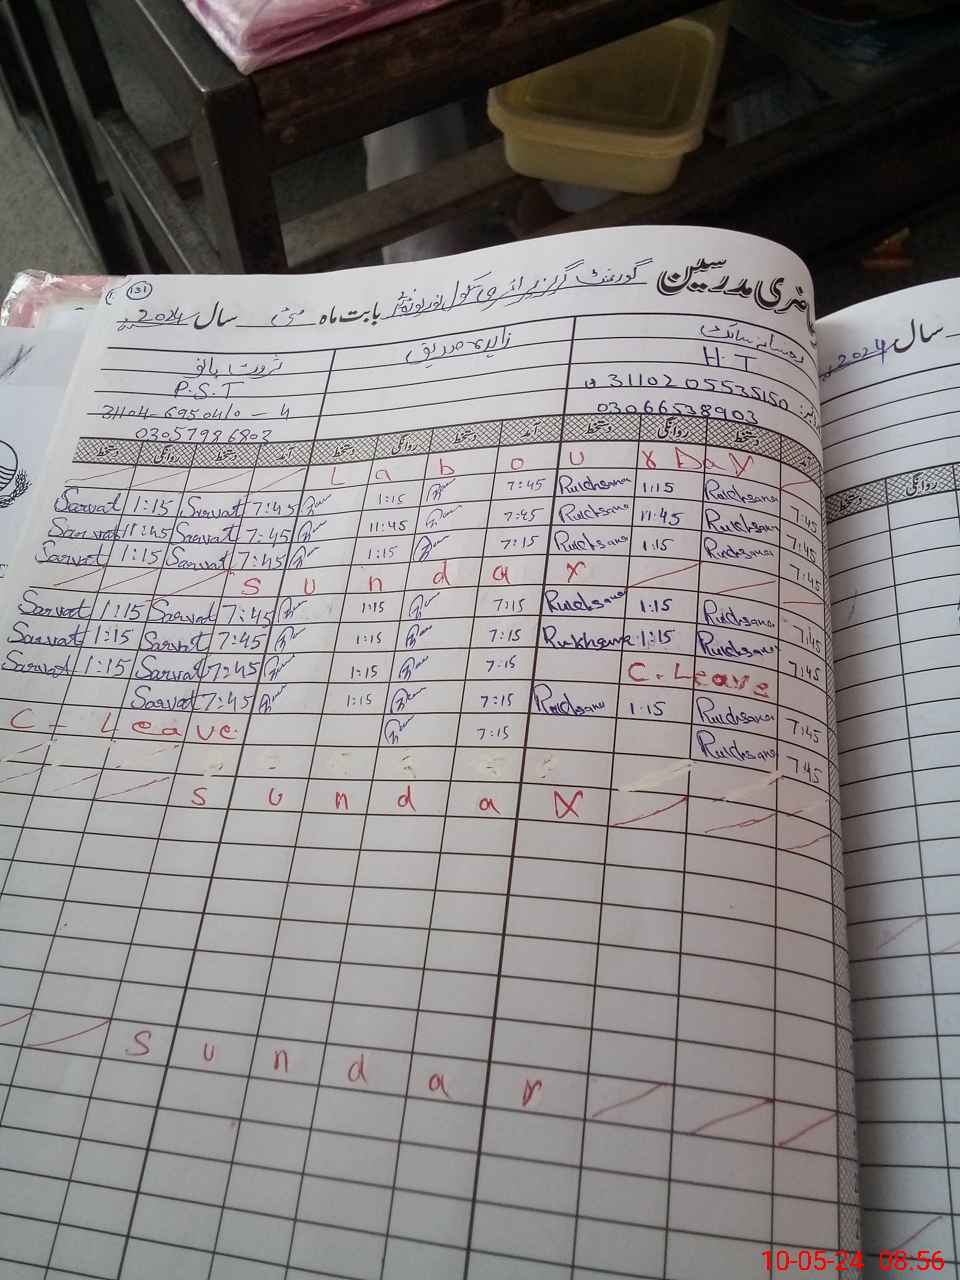 حاضری مدرسین گورنمنٹ گرلز پرائمری سکول بابت ماہ مئی سال 2024
131
رخسانہ
زاہدہ صدیق
ثروت بانو
H T
P.S.T
31102 05535150
31104-6950410-4
03066538903
03057986803
آمد دستخط روانگی دستخط آمد دستخط روانگی دستخط آمد دستخط روانگی دستخط
Labour Day
Sarvat 1:15 Sarvat 7:45 1:15 7:45 Rukhsana 1:15 Rukhsana 7:45
Sarvat 11:45 Sarvat 7:45 11:45 7:45 Rukhsana 11:45 Rukhsana 7:45
Sarvat 1:15 Sarvat 7:45 1:15 7:15 Rukhsana 1:15 Rukhsana 7:45
Sunday
Sarvat 1:15 Sarvat 7:45 1:15 7:15 Rukhsana 1:15 Rukhsana 7:45
Sarvat 1:15 Sarvat 7:45 1:15 7:15 Rukhsana 1:15 Rukhsana 7:45
Sarvat 1:15 Sarvat 7:45 1:15 7:15 C. Leave
Sarvat 7:45 1:15 7:15 Rukhsana 1:15 Rukhsana 7:45
C - Leave 7:15 Rukhsana 7:45
Sunday
Sunday
سال 2024
دستخط روانگی
10-05-24 08:56